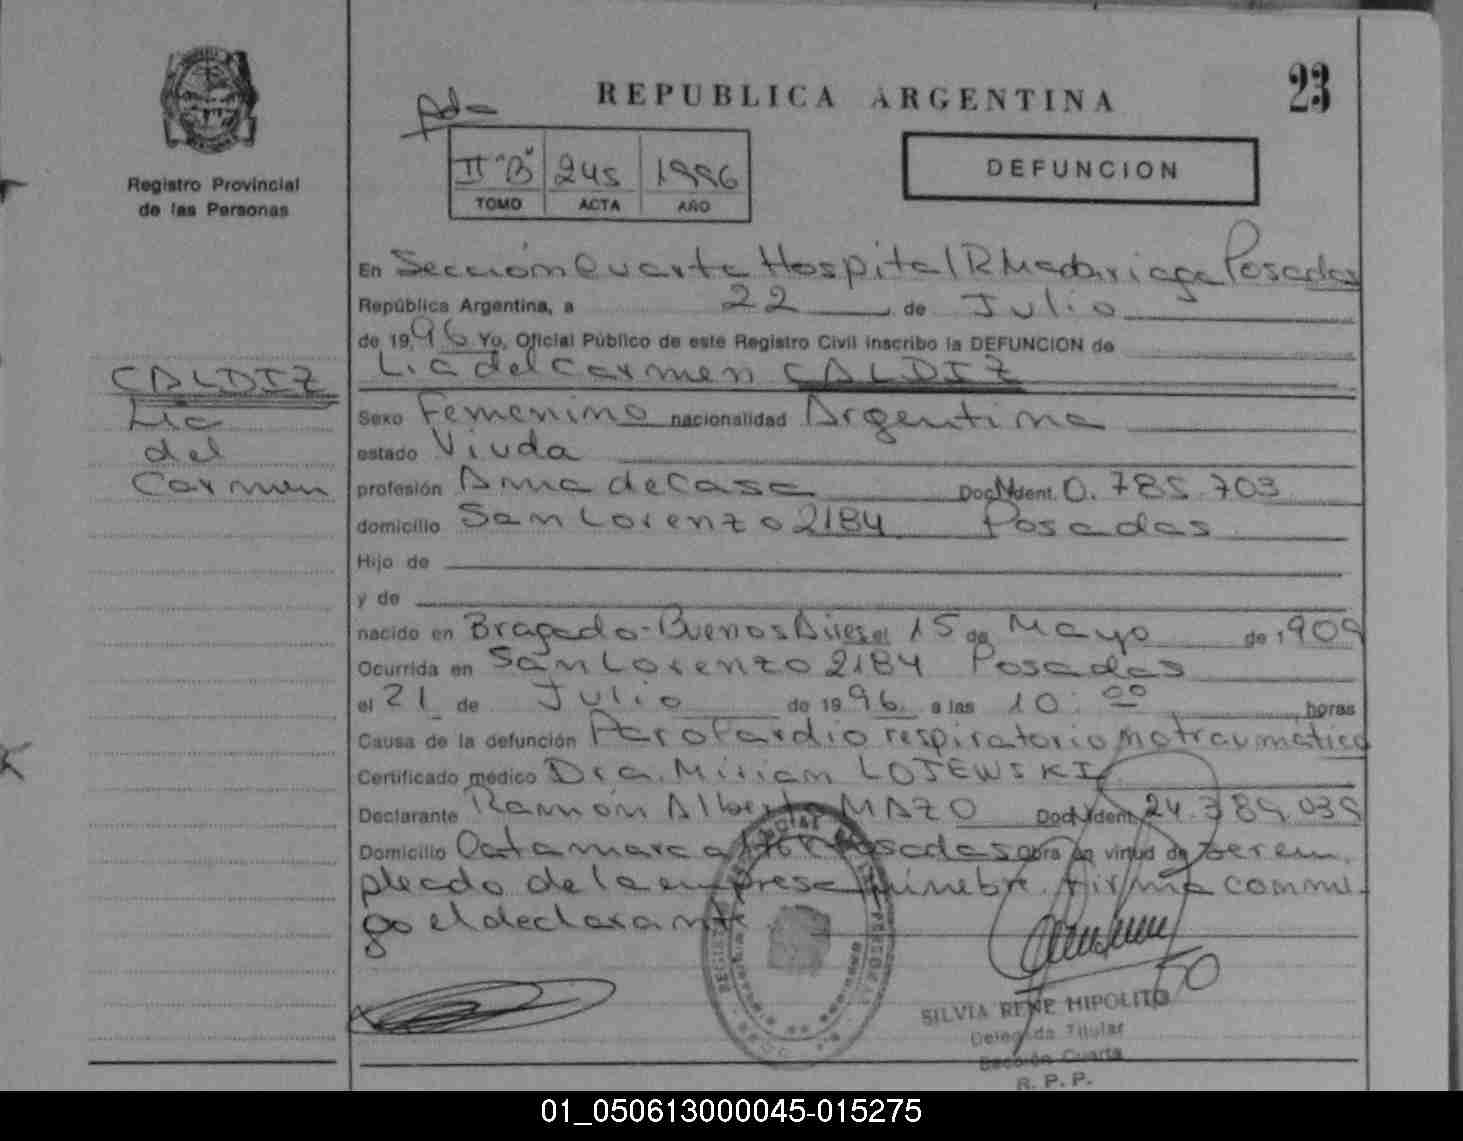 23
REPUBLICA ARGENTINA
DEFUNCION
II "B" 245 1996
TOMO ACTA AÑO
Registro Provincial
de las Personas
CALDIZ
Lia
del
Carmen
En Sección Cuarta Hospital R Madariaga Posadas
República Argentina, a 22 de Julio
de 1996 Yo, Oficial Público de este Registro Civil inscribo la DEFUNCION de
Lia del Carmen CALDIZ
Sexo Femenino nacionalidad Argentina
estado Viuda
profesión Ama de Casa Doc. Ident. 0.785.703
domicilio San Lorenzo 2184 Posadas
Hijo de
y de
nacido en Bragado-Buenos Aires el 15 de Mayo de 1909
Ocurrida en San Lorenzo 2184 Posadas
el 21 de Julio de 1996 a las 10:00 horas
Causa de la defunción Paro Cardio respiratorio no traumático
Certificado médico Dra. Miriam LOJEWSKI
Declarante Ramón Alberto MAZO Doc. Ident. 24.389.039
Domicilio Catamarca Posadas obra en virtud de ser em
pleado de la empresa fúnebre. firma conmi-
go el declarante
SILVIA RENE HIPOLITO
Delegada Titular
Sección Cuarta
R. P. P.
01_050613000045-015275